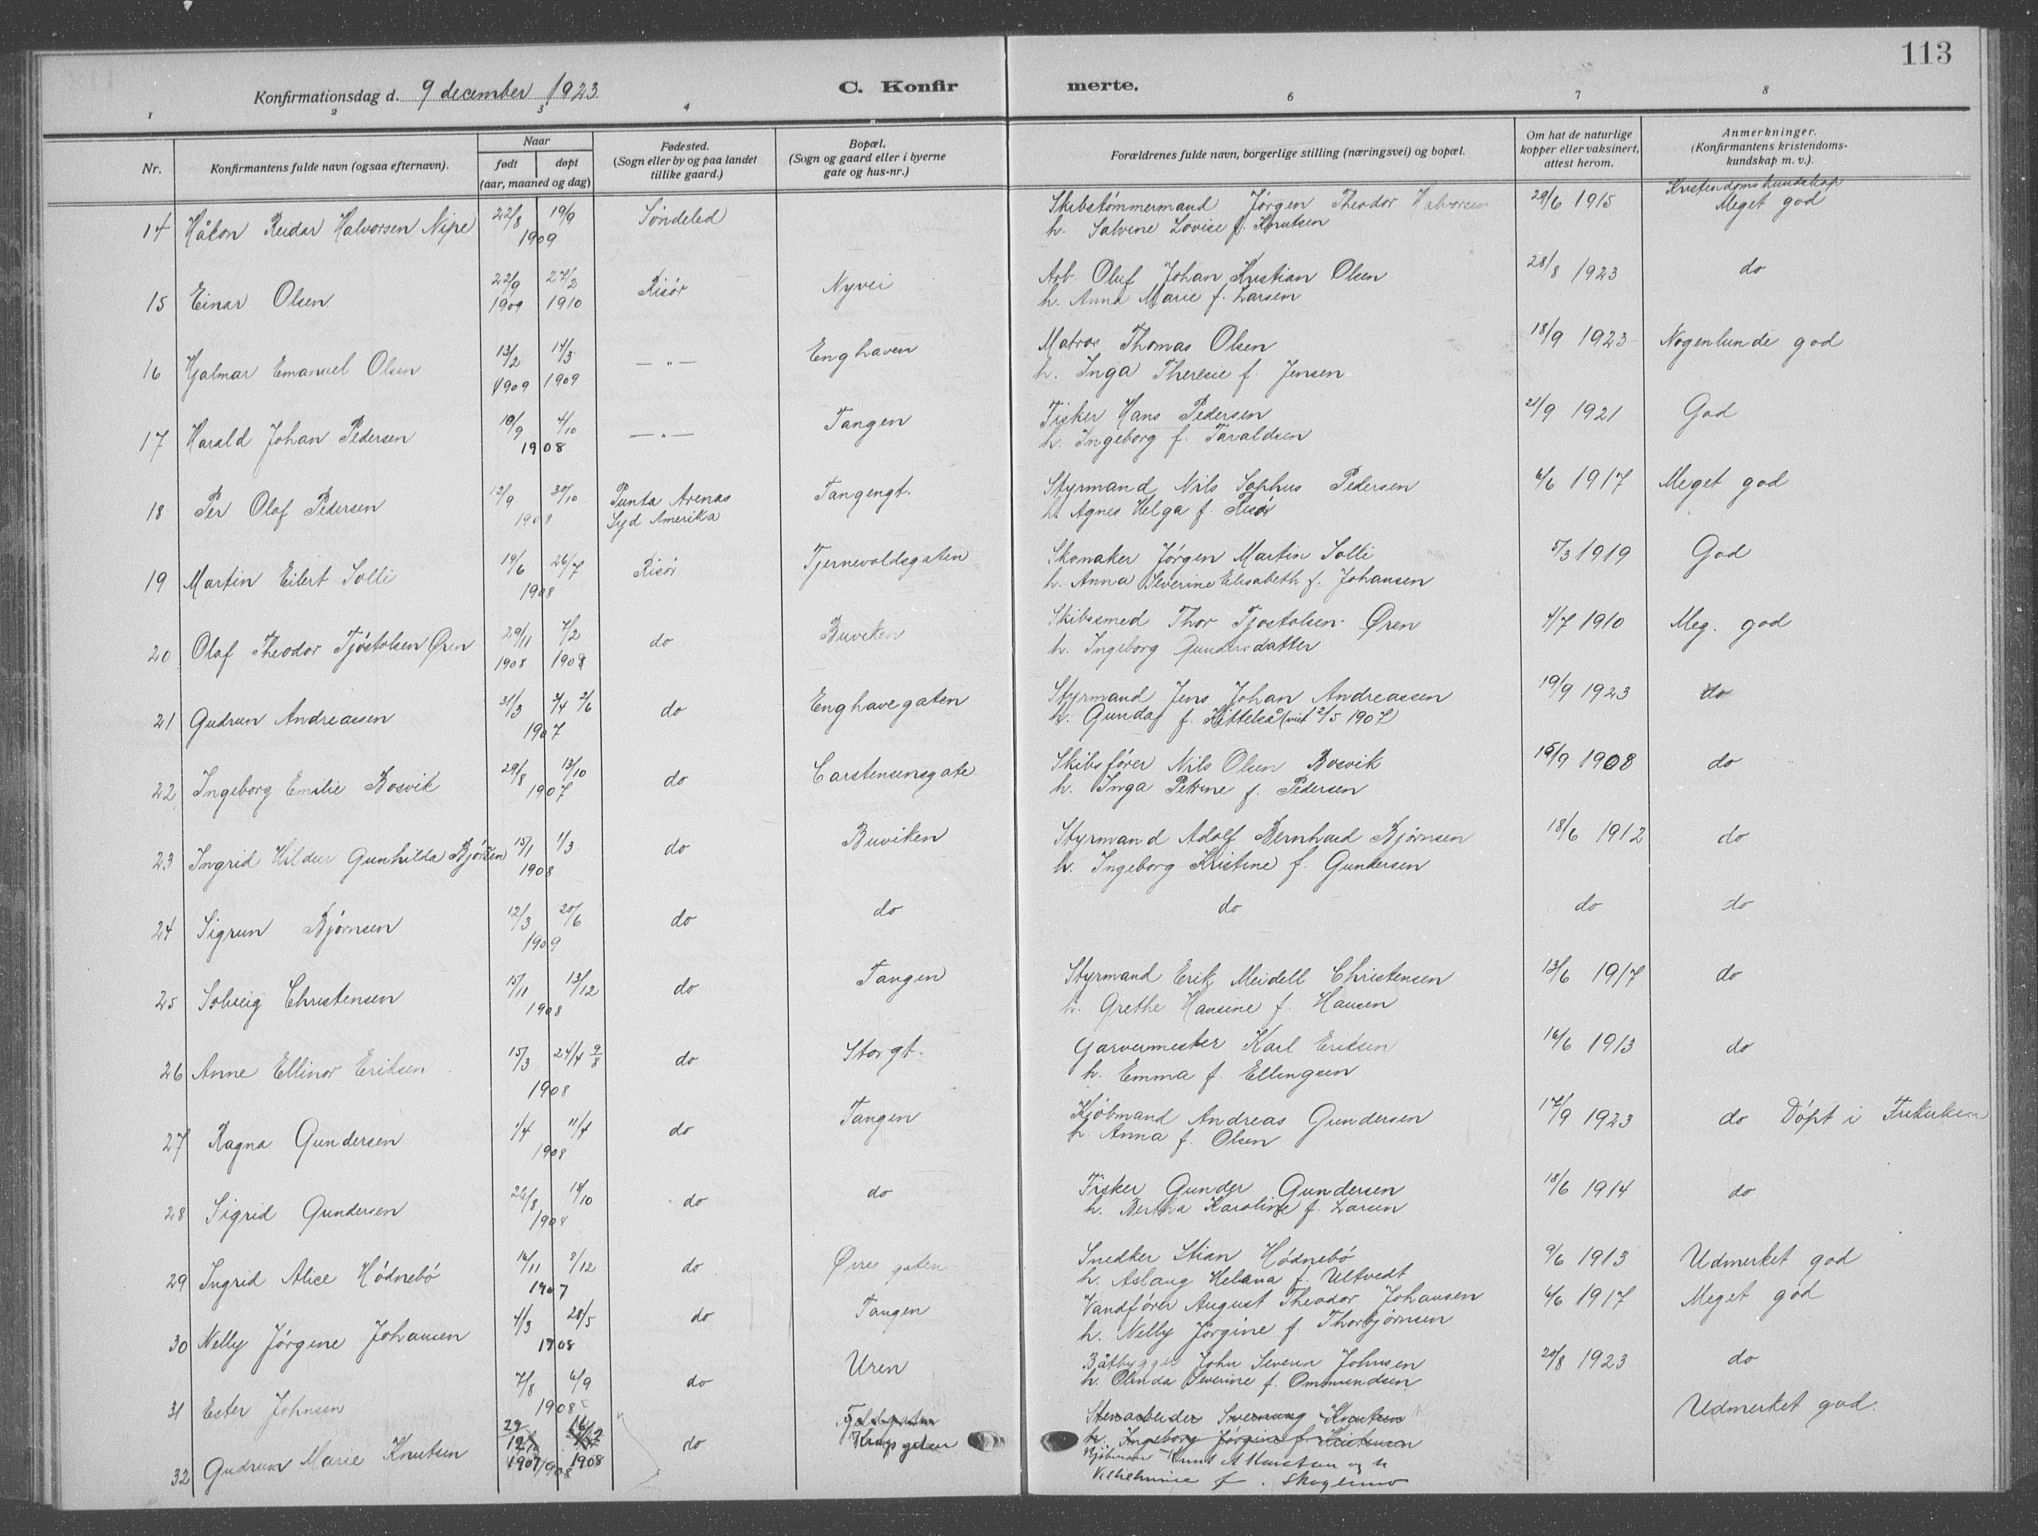 113
Konfirmationsdag d. 9 december 1923
C. Konfirmerte.
1 2 3 4 6 7 8
Nr. Konfirmantens fulde navn (ogsaa efternavn). Naar født døpt (aar, maaned og dag) Fødested. (Sogn eller by og paa landet tillike gaard.) Bopæl. (Sogn og gaard eller i byerne gate og hus-nr.) Forældrenes fulde navn, borgerlige stilling (næringsvei) og bopæl. Om hat de naturlige kopper eller vaksinert, attest herom. Anmerkninger. (Konfirmantens kristendomskundskap m. v.).
14 Håkon Reidar Halvorsen Nipe 22/8 19/9 1909 Søndeled Skibstømmermand Jørgen Theodor Halvorsen 29/6 1915 Kristendomskundskap Meget god
h. Salvine Lovise f. Knutsen
15 Einar Olsen 22/9 1909 27/2 1910 Risør Nyvei Arb. Oluf Johan Kristian Olsen 28/8 1923 do
h. Anna Marie f. Larsen
16 Hjalmar Emanuel Olsen 13/2 1909 14/3 1909 — " — Enghaven Matros Thomas Olsen 18/9 1923 Nogenlunde god
h. Inga Theresie f. Jensen
17 Harald Johan Pedersen 10/9 4/10 1908 — " — Tangen Fisker Hans Pedersen 21/9 1921 God
h. Ingeborg f. Taraldsen
18 Per Olaf Pedersen 12/9 30/10 1908 Punta Arenas Syd Amerika Tangengt. Styrmand Nils Sophus Pedersen 6/6 1917 Meget god
h. Agnes Helga f. Risør
19 Martin Eilert Solli 19/6 26/7 1908 Risør Tjernevoldsgaten Skomaker Jørgen Martin Solli 5/3 1919 God
h. Anna Severine Elisabeth f. Johansen
20 Olaf Theodor Tjøstolsen Øren 29/11 1908 7/2 1909 do Buviken Skibssmed Thor Tjøstolsen Øren 4/7 1910 Meg. god
h. Ingeborg Gundersdatter
21 Gudrun Andreassen 31/3 2/6 1907 do Enghavegaten Styrmand Jens Johan Andreassen 19/9 1923 do
h. Gunda f. Kittelså (viet 2/5 1907)
22 Ingeborg Emilie Bosvik 29/8 13/10 1907 do Carstensensgate Skibsfører Nils Olsen Bosvik 15/9 1908 do
h. Inga Petrine f. Pedersen
23 Ingrid Hildur Gunhilda Bjørnsen 15/1 1/3 1908 do Buviken Styrmand Adolf Bernhard Bjørnsen 18/6 1912 do
h. Ingeborg Kristine f. Gundersen
24 Sigrun Bjørnsen 12/3 20/6 1909 do do do do do
25 Solveig Christensen 15/11 13/12 1908 do Tangen Styrmand Erik Meidell Christensen 13/6 1917 do
h. Grethe Hansine f. Hansen
26 Anne Ellinor Eriksen 15/3 24/4 9/8 1908 do Storgt. Garvermester Karl Eriksen 16/6 1913 do
h. Emma f. Ellingsen
27 Ragna Gundersen 1/4 11/4 1908 do Tangen Kjøbmand Andreas Gundersen 17/9 1923 do Døpt i Frikirken
h. Anna f. Olsen
28 Sigrid Gundersen 26/8 18/10 1908 do do Fisker Gunder Gundersen 18/6 1914 do
h. Bertha Karoline f. Larsen
29 Ingrid Alice Hødnebø 16/11 8/12 1907 do Øvregaten Snedker Stian Hødnebø 9/6 1913 Udmerket god
h. Aslaug Helana f. Ultvedt
30 Nelly Jørgine Johansen 4/3 28/5 1908 do Tangen Vandfører August Theodor Johansen 6/6 1917 Meget god
h. Nelly Jørgine f. Thorbjørnsen
31 Ester Johnsen 7/8 6/9 1908 do Uren Båtbygger John Severin Johnsen 20/8 1923 do
h. Olinda Severine f. Ommundsen
32 Gudrun Marie Knutsen 29 16 1907 1908 do gaten Stenarbeider Knutsen Udmerket god.
h. Ingeborg Jørgine f. Kristensen
Knut
Vilhelmine f.